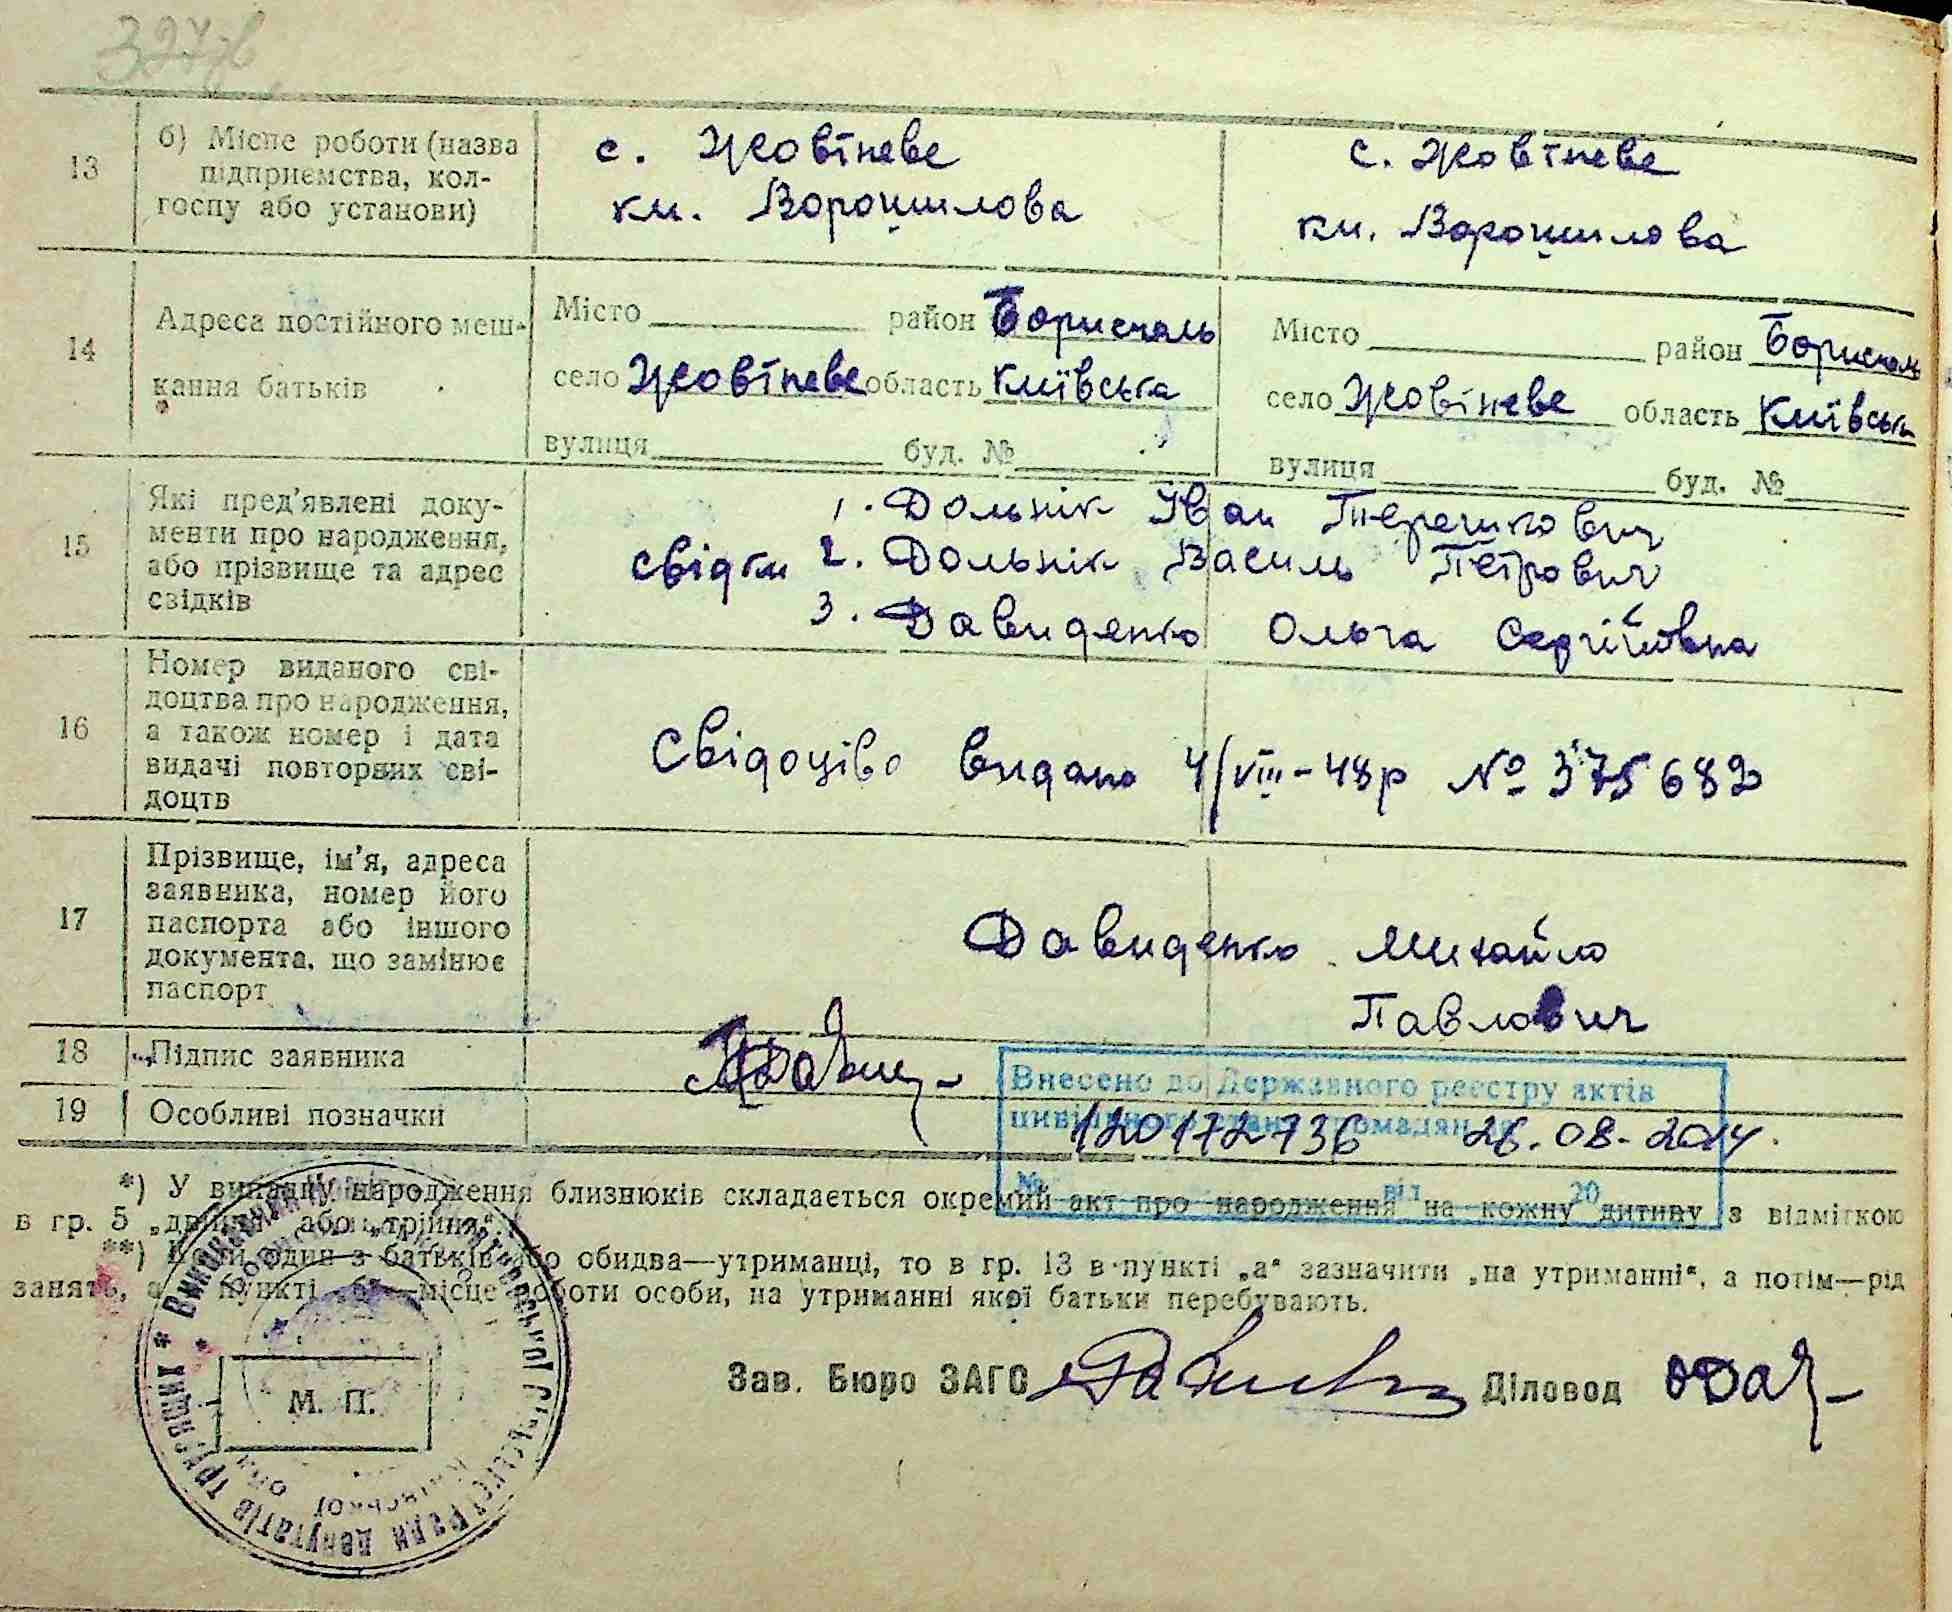 327зв
13
б) Місце роботи (назва підприємства, колгоспу або установи)
с. Жовтневе
км. Ворошилова
с. Жовтневе
км. Ворошилова
14
Адреса постійного мешкання батьків
Місто район Бориспаль
село Жовтневе область Київська
вулиця буд. №
Місто район Бориспаль
село Жовтневе область Київськ
вулиця буд. №
15
Які пред'явлені документи про народження, або прізвище та адрес свідків
свідки 1. Дольнік Іван Терешкович
2. Дольнік Василь Петрович
3. Давиденко Ольга Сергіївна
16
Номер виданого свідоцтва про народження, а також номер і дата видачі повторних свідоцтв
Свідоцтво видано 4/VIII-48р № 375682
17
Прізвище, ім'я, адреса заявника, номер його паспорта або іншого документа, що замінює паспорт
Давиденко Михайло
Павлович
18
Підпис заявника
19
Особливі позначки
Внесено до Державного реєстру актів
цивільного стану громадян
120172736 26.08.2014.
№ від 20
*) У випадку народження близнюків складається окремий акт про народження на кожну дитину з відміткою
в гр. 5 „двійня" або „трійня".
**) Коли один з батьків або обидва—утриманці, то в гр. 13 в пункті „а" зазначити „на утриманні", а потім—рід
занять, а в пункті „б"—місце роботи особи, на утриманні якої батьки перебувають.
Зав. Бюро ЗАГС Діловод
М. П.